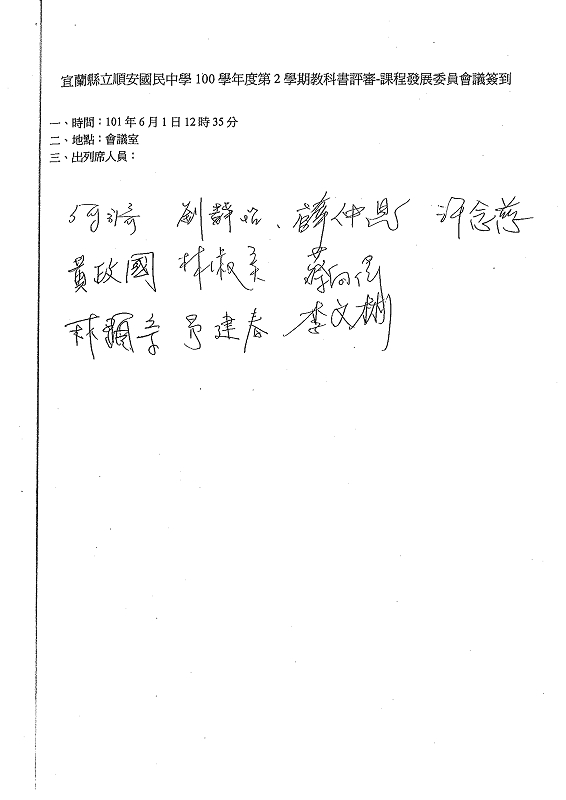 宜蘭縣立順安國民中學 100 學年度第 2 學期教科書評審-課程發展委員會議簽到
一、時間：101 年 6 月 1 日 12 時 35 分
二、地點：會議室
三、出列席人員：
劉靜 、薛仲恩 許念慈
黃政國 林淑美 蔡
林 章 建春 李文樹